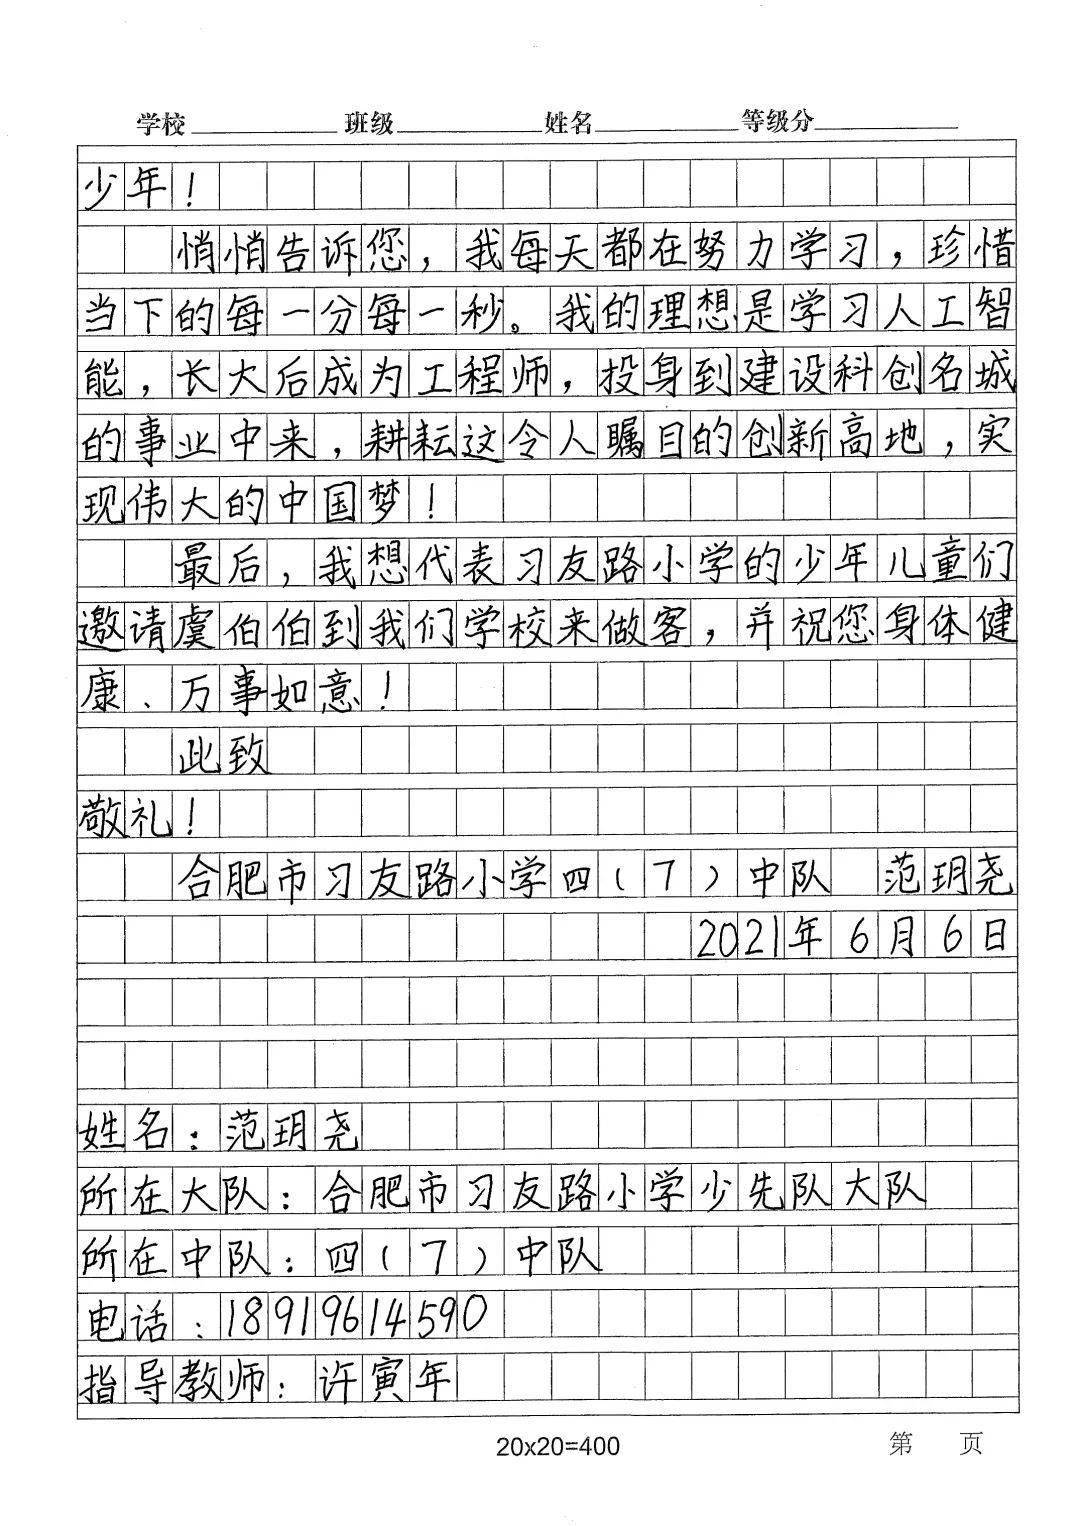 学校 班级 姓名 等级分
少年！
悄悄告诉您，我每天都在努力学习，珍惜
当下的每一分每一秒。我的理想是学习人工智
能，长大后成为工程师，投身到建设科创名城
的事业中来，耕耘这令人瞩目的创新高地，实
现伟大的中国梦！
最后，我想代表习友路小学的少年儿童们
邀请虞伯伯到我们学校来做客，并祝您身体健
康、万事如意！
此致
敬礼！
合肥市习友路小学四（7）中队 范玥尧
2021年6月6日
姓名：范玥尧
所在大队：合肥市习友路小学少先队大队
所在中队：四（7）中队
电话：18919614590
指导教师：许寅年
20x20=400 第 页